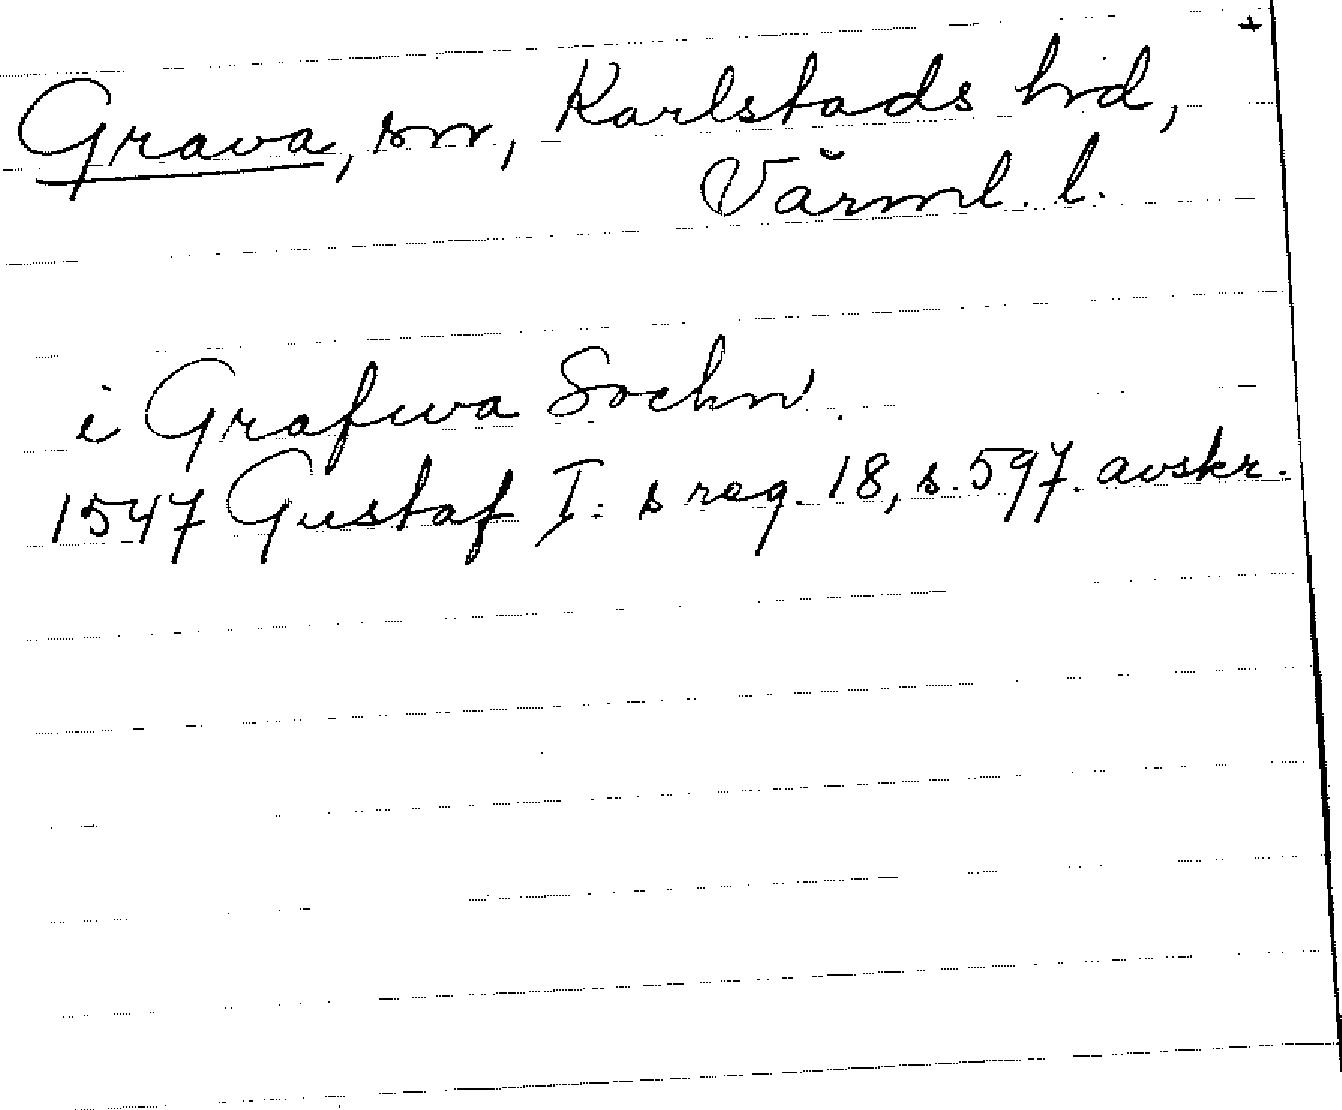 +
Grava, sn, Karlstads hd,
Värml. l.
i Grafwa Sochn.
1547 Gustaf I:s reg. 18, s. 597. avskr.